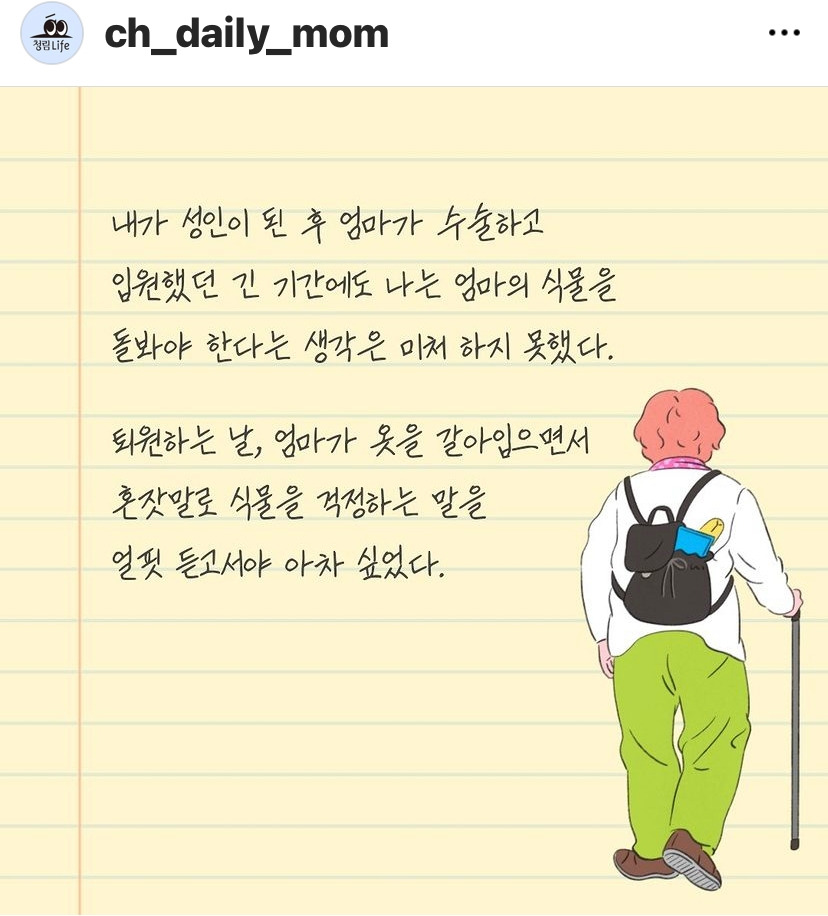 청림Life
ch_daily_mom
내가 성인이 된 후 엄마가 수술하고
입원했던 긴 기간에도 나는 엄마의 식물을
돌봐야 한다는 생각은 미처 하지 못했다.
퇴원하는 날, 엄마가 옷을 갈아입으면서
혼잣말로 식물을 걱정하는 말을
얼핏 듣고서야 아차 싶었다.